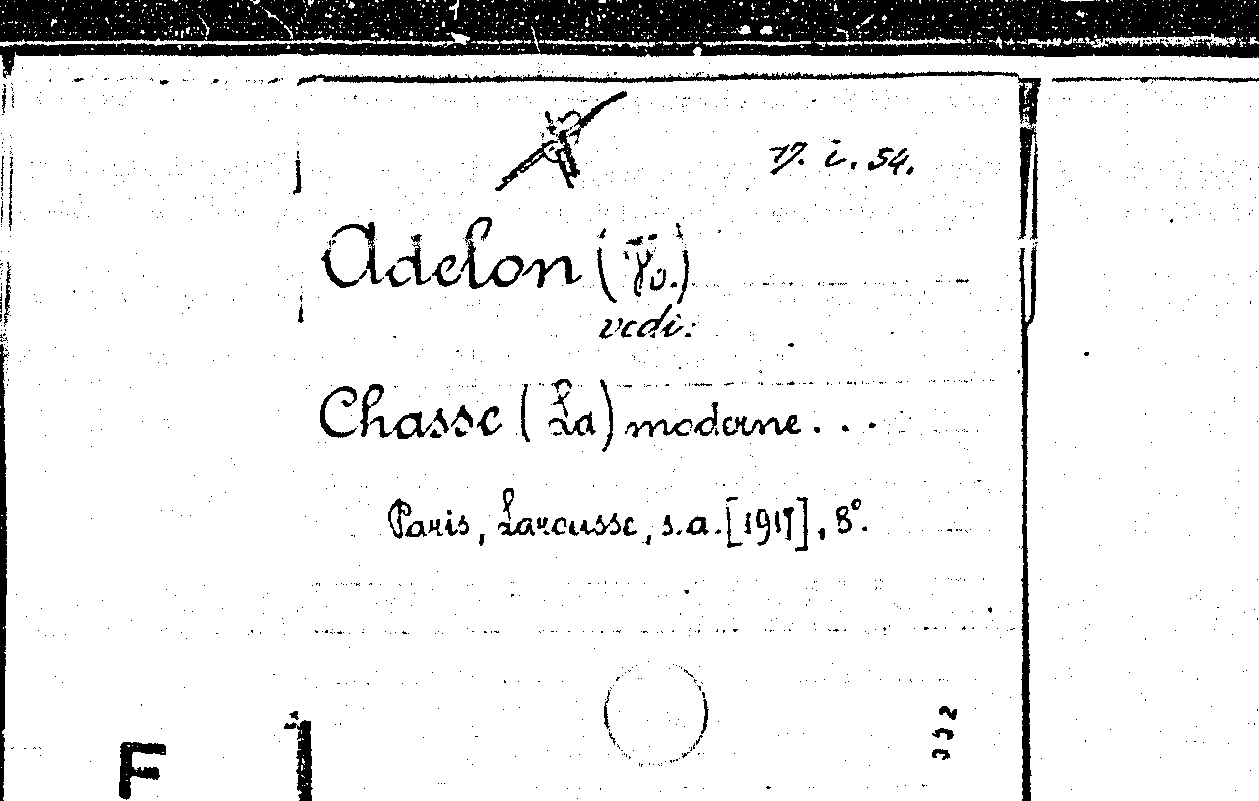 7. i. 54.
Adelon (Fr.)
vedi:
Chasse (La) moderne...
Paris, Larousse, s.a. [1911], 8°.
F